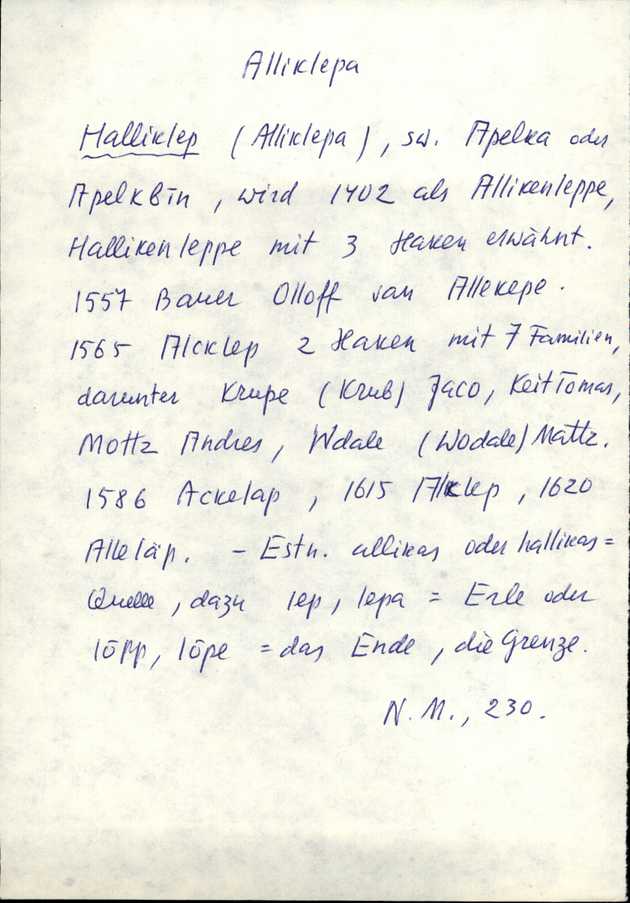 Alliklepa
Halliklep (Alliklepa), sw. Apelka oder
Apelkbīn, wird 1402 als Allikenleppe,
Hallikenleppe mit 3 Haken erwähnt.
1557 Bauer Olloff van Allekepe.
1565 Alcklep 2 Haken mit 7 Familien,
darunter Krupe (Krub) Jaco, Keit Tomas,
Mottz Andres, Wdale (Wodale) Mattz.
1586 Ackelap, 1615 Alklep, 1620
Alleläp. - Estn. allikas oder hallikas =
Quelle, dazu lep, lepa = Erle oder
lõpp, lõpe = das Ende, die Grenze.
N. M., 230.